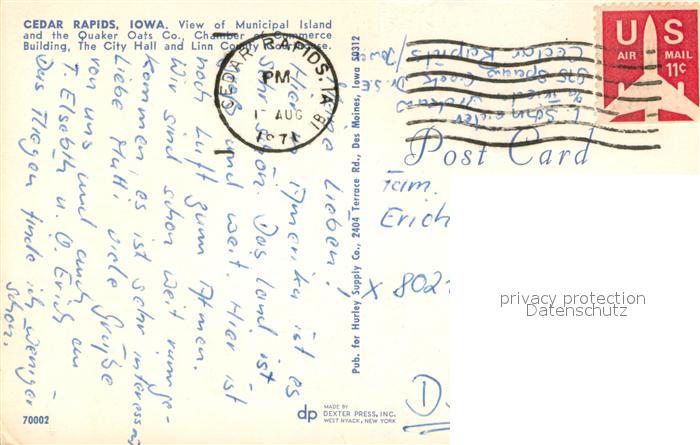 CEDAR RAPIDS, IOWA. View of Municipal Island
and the Quaker Oats Co., Chamber of Commerce
Building, The City Hall and Linn County Courthouse.
Ihr Lieben!
Hier in Amerika ist es
sehr schön. Das Land ist
groß und weit. Hier ist
noch Luft zum Atmen.
Wir sind schon weit rumge-
kommen es ist sehr interessant
Liebe Mutti viele Grüße
von uns und auch
T. Elsabeth u. O. Erich an
Das Fliegen finde ich weniger
schön.
70002
Pub. for Hurley Supply Co., 2404 Terrace Rd., Des Moines, Iowa 50312
dp
MADE BY
DEXTER PRESS, INC.
WEST NYACK, NEW YORK
CEDAR RAPIDS, IA
PM
AUG
1971
US
AIR MAIL
11¢
L. Schneider
Cedar Rapids / Iowa
Post Card
Fam.
Erich
X 802
D
privacy protection
Datenschutz